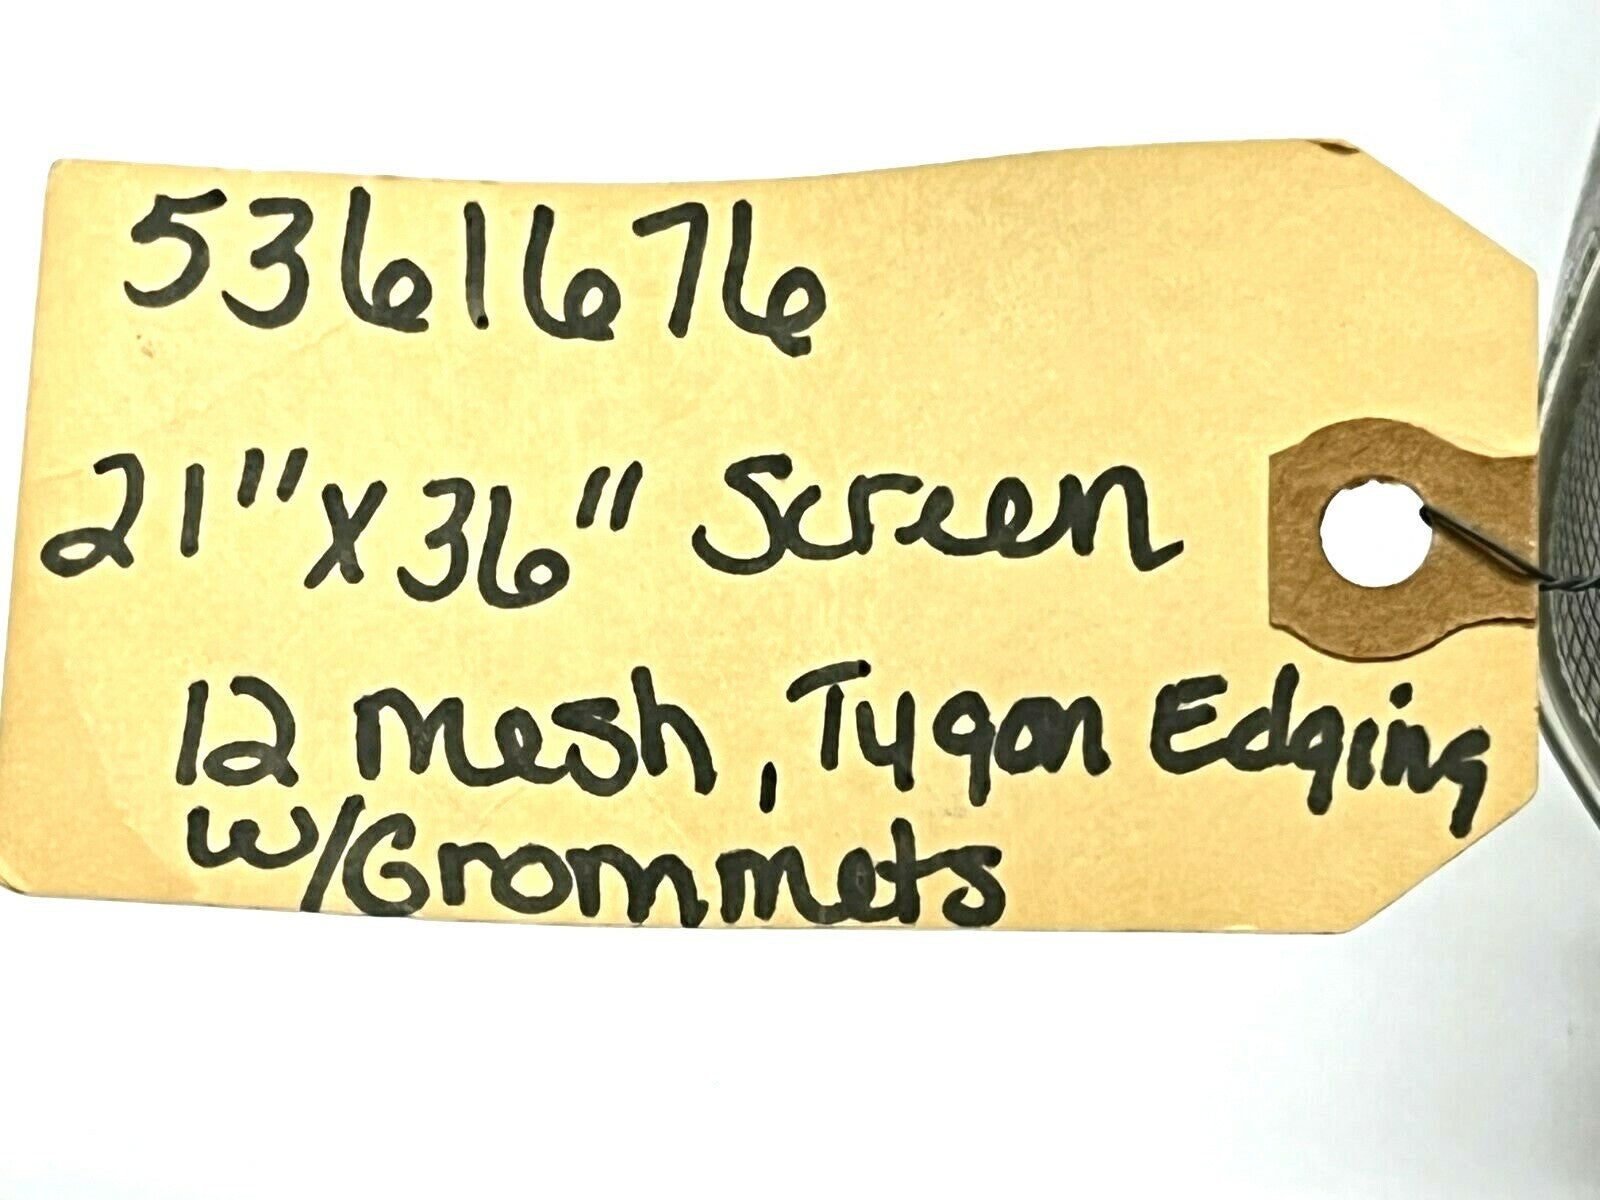 5361676
21" x 36" Screen
12 mesh, Tygon Edging
w/Grommets